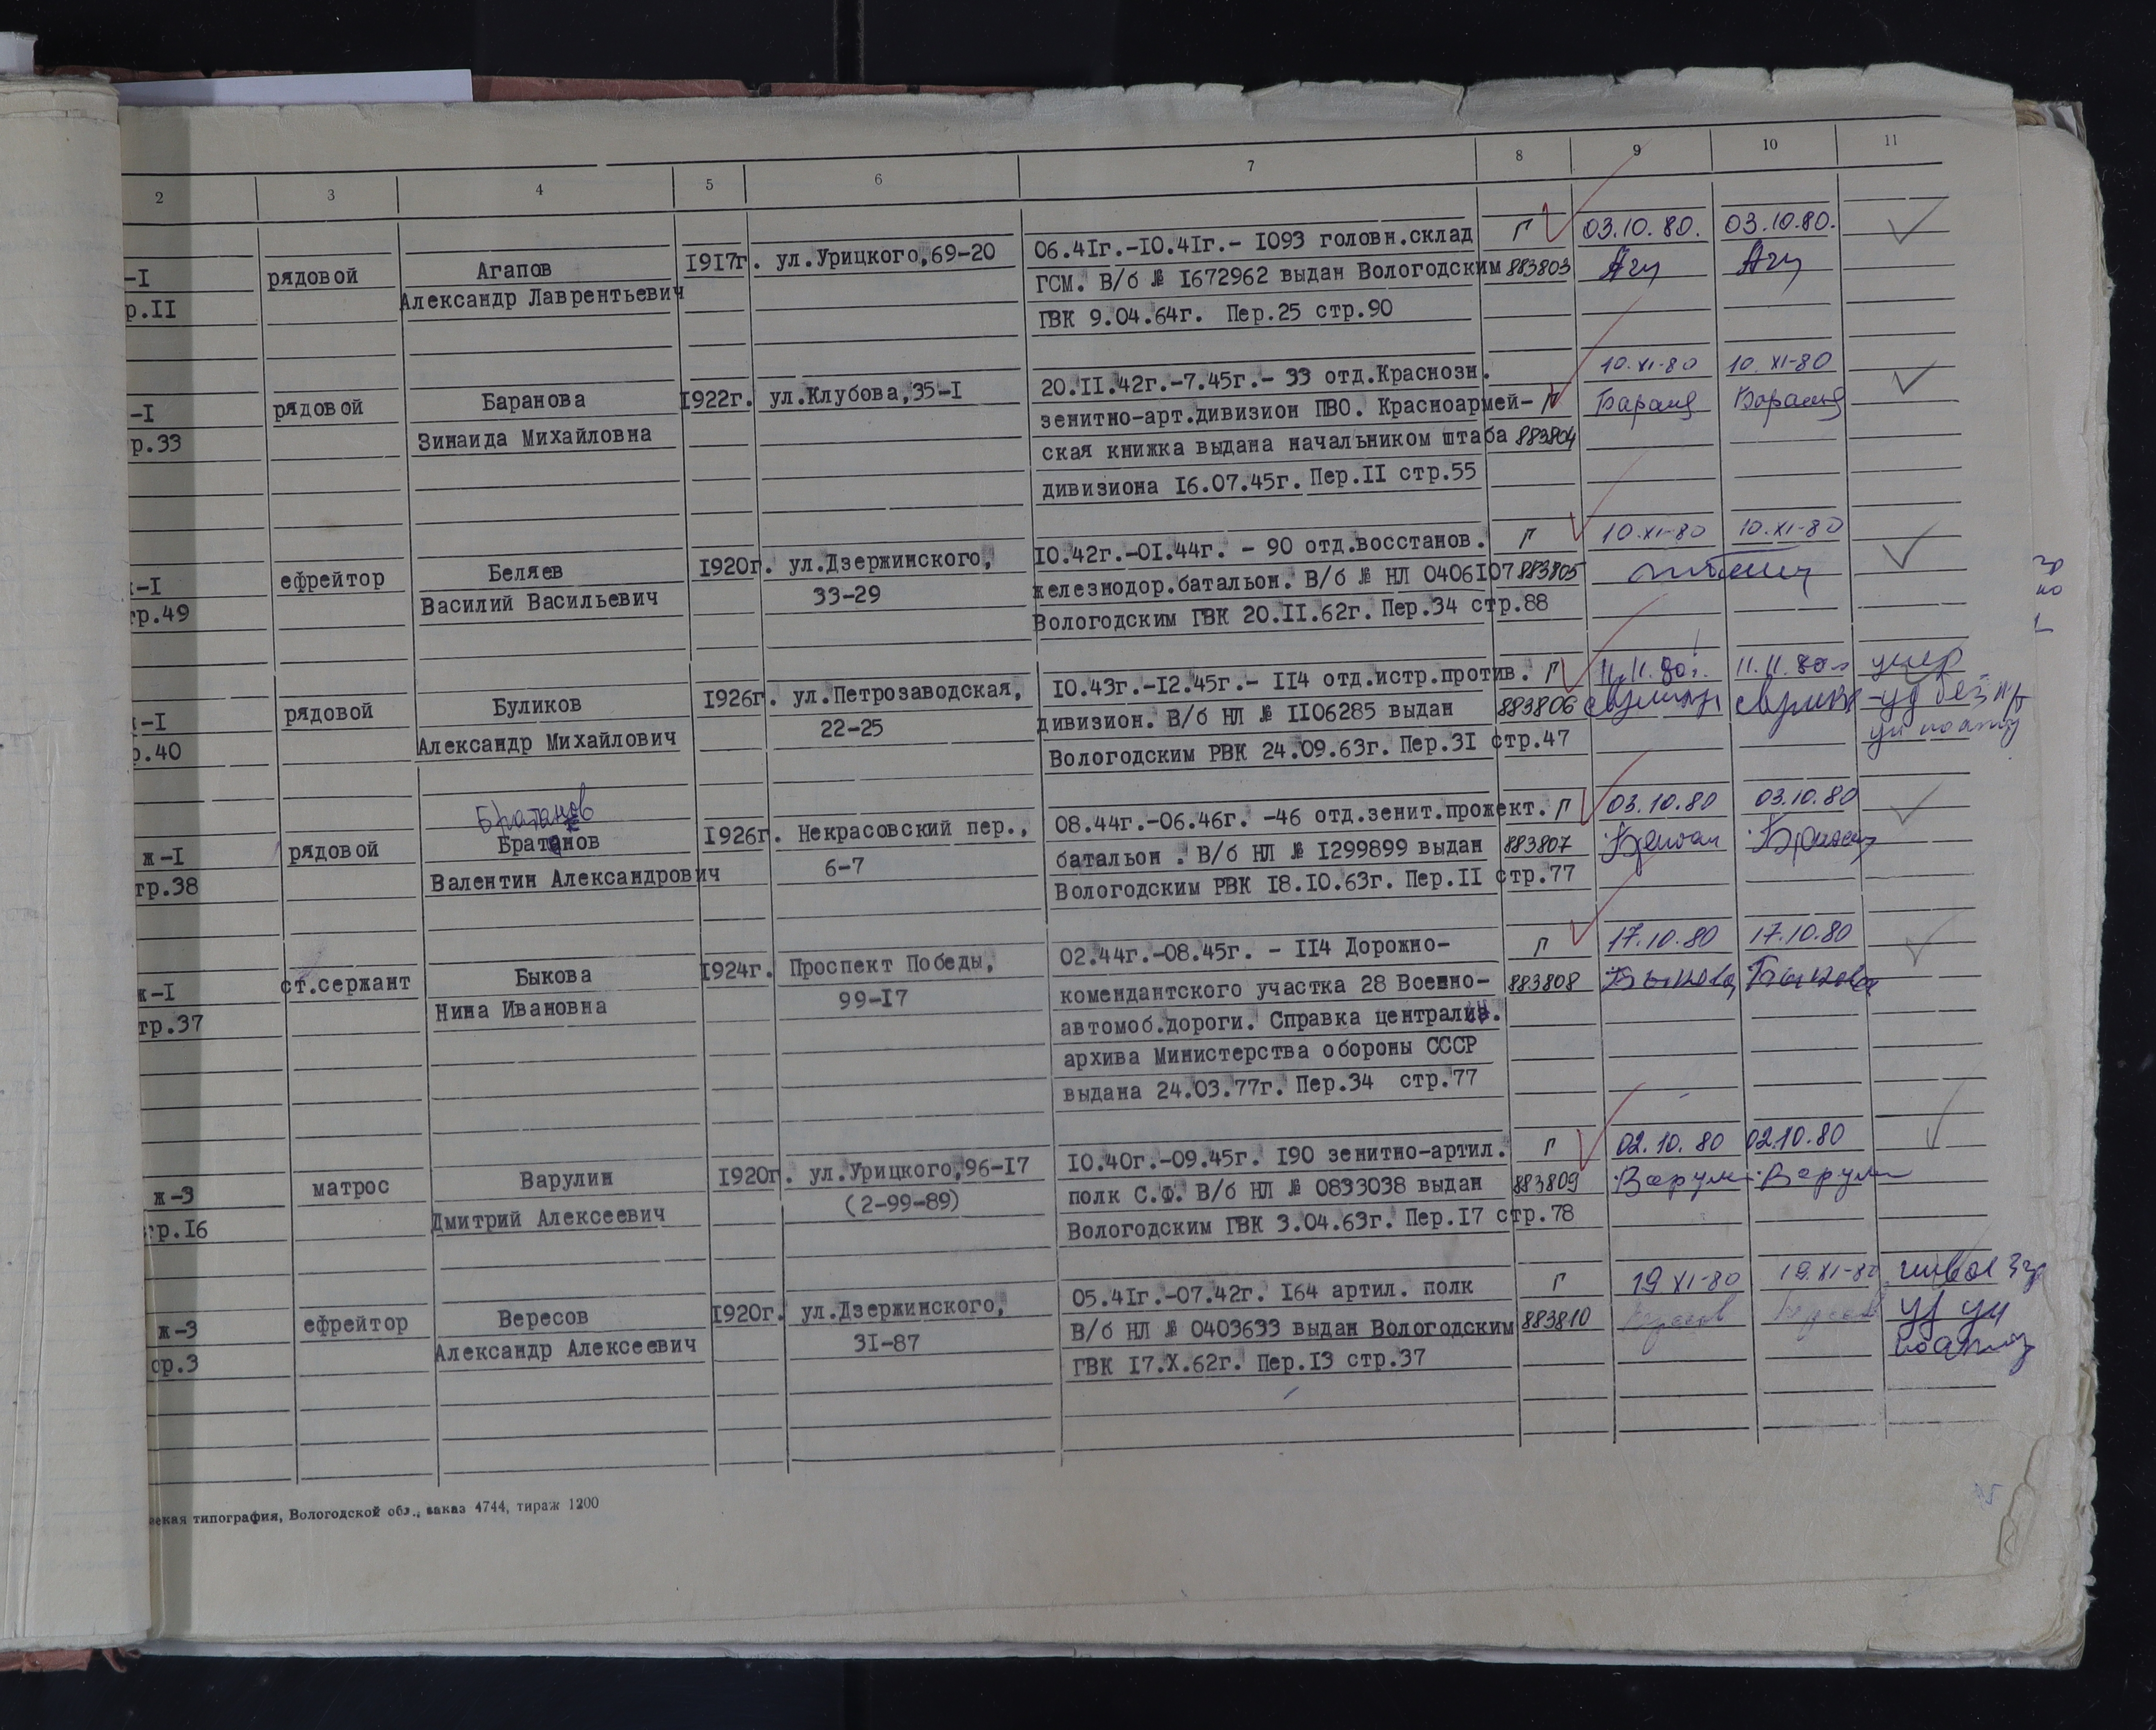 2 3 4 5 6 7 8 9 10 11
-I рядовой Агапов 1917г. ул.Урицкого,69-20 06.41г.-10.41г.- 1093 головн.склад Г 03.10.80. 03.10.80.
р.II Александр Лаврентьевич ГСМ. В/б № 1672962 выдан Вологодским 883803
ГВК 9.04.64г. Пер.25 стр.90
-I рядовой Баранова 1922г. ул.Клубова,35-I 20.II.42г.-7.45г.- 33 отд.Краснозн. 10.XI-80 10.XI-80
р.33 Зинаида Михайловна зенитно-арт.дивизион ПВО. Красноармей- Г
ская книжка выдана начальником штаба 883804
дивизиона 16.07.45г. Пер.II стр.55
-I ефрейтор Беляев 1920г. ул.Дзержинского, 10.42г.-01.44г. - 90 отд.восстанов. Г 10.XI-80 10.XI-80
тр.49 Василий Васильевич 33-29 железнодор.батальон. В/б № НЛ 0406107 883805
Вологодским ГВК 20.II.62г. Пер.34 стр.88
-I рядовой Буликов 1926г. ул.Петрозаводская, 10.43г.-12.45г.- 114 отд.истр.против. Г 11.11.80г. 11.11.80г. умер
р.40 Александр Михайлович 22-25 дивизион. В/б НЛ № 1106285 выдан 883806
Вологодским РВК 24.09.63г. Пер.3I стр.47
Братанов
ж-I рядовой Братанов 1926г. Некрасовский пер., 08.44г.-06.46г. -46 отд.зенит.прожект. Г 03.10.80 03.10.80
тр.38 Валентин Александрович 6-7 батальон . В/б НЛ № 1299899 выдан 883807
Вологодским РВК 18.10.63г. Пер.II стр.77
ж-I ст.сержант Быкова 1924г. Проспект Победы, 02.44г.-08.45г. - 114 Дорожно- Г 17.10.80 17.10.80
тр.37 Нина Ивановна 99-17 комендантского участка 28 Военно- 883808 Быкова Быкова
автомоб.дороги. Справка централи.
архива Министерства обороны СССР
выдана 24.03.77г. Пер.34 стр.77
ж-3 матрос Варулин 1920г. ул.Урицкого,96-17 10.40г.-09.45г. 190 зенитно-артил. Г 02.10.80 02.10.80
тр.16 Дмитрий Алексеевич (2-99-89) полк С.Ф. В/б НЛ № 0833038 выдан 883809
Вологодским ГВК 3.04.63г. Пер.17 стр.78
ж-3 ефрейтор Вересов 1920г. ул.Дзержинского, 05.41г.-07.42г. 164 артил. полк Г 19 XI-80 19.XI-80
ср.3 Александр Алексеевич 31-87 В/б НЛ № 0403633 выдан Вологодским 883810
ГВК 17.X.62г. Пер.13 стр.37
ская типография, Вологодской обл., заказ 4744, тираж 1200